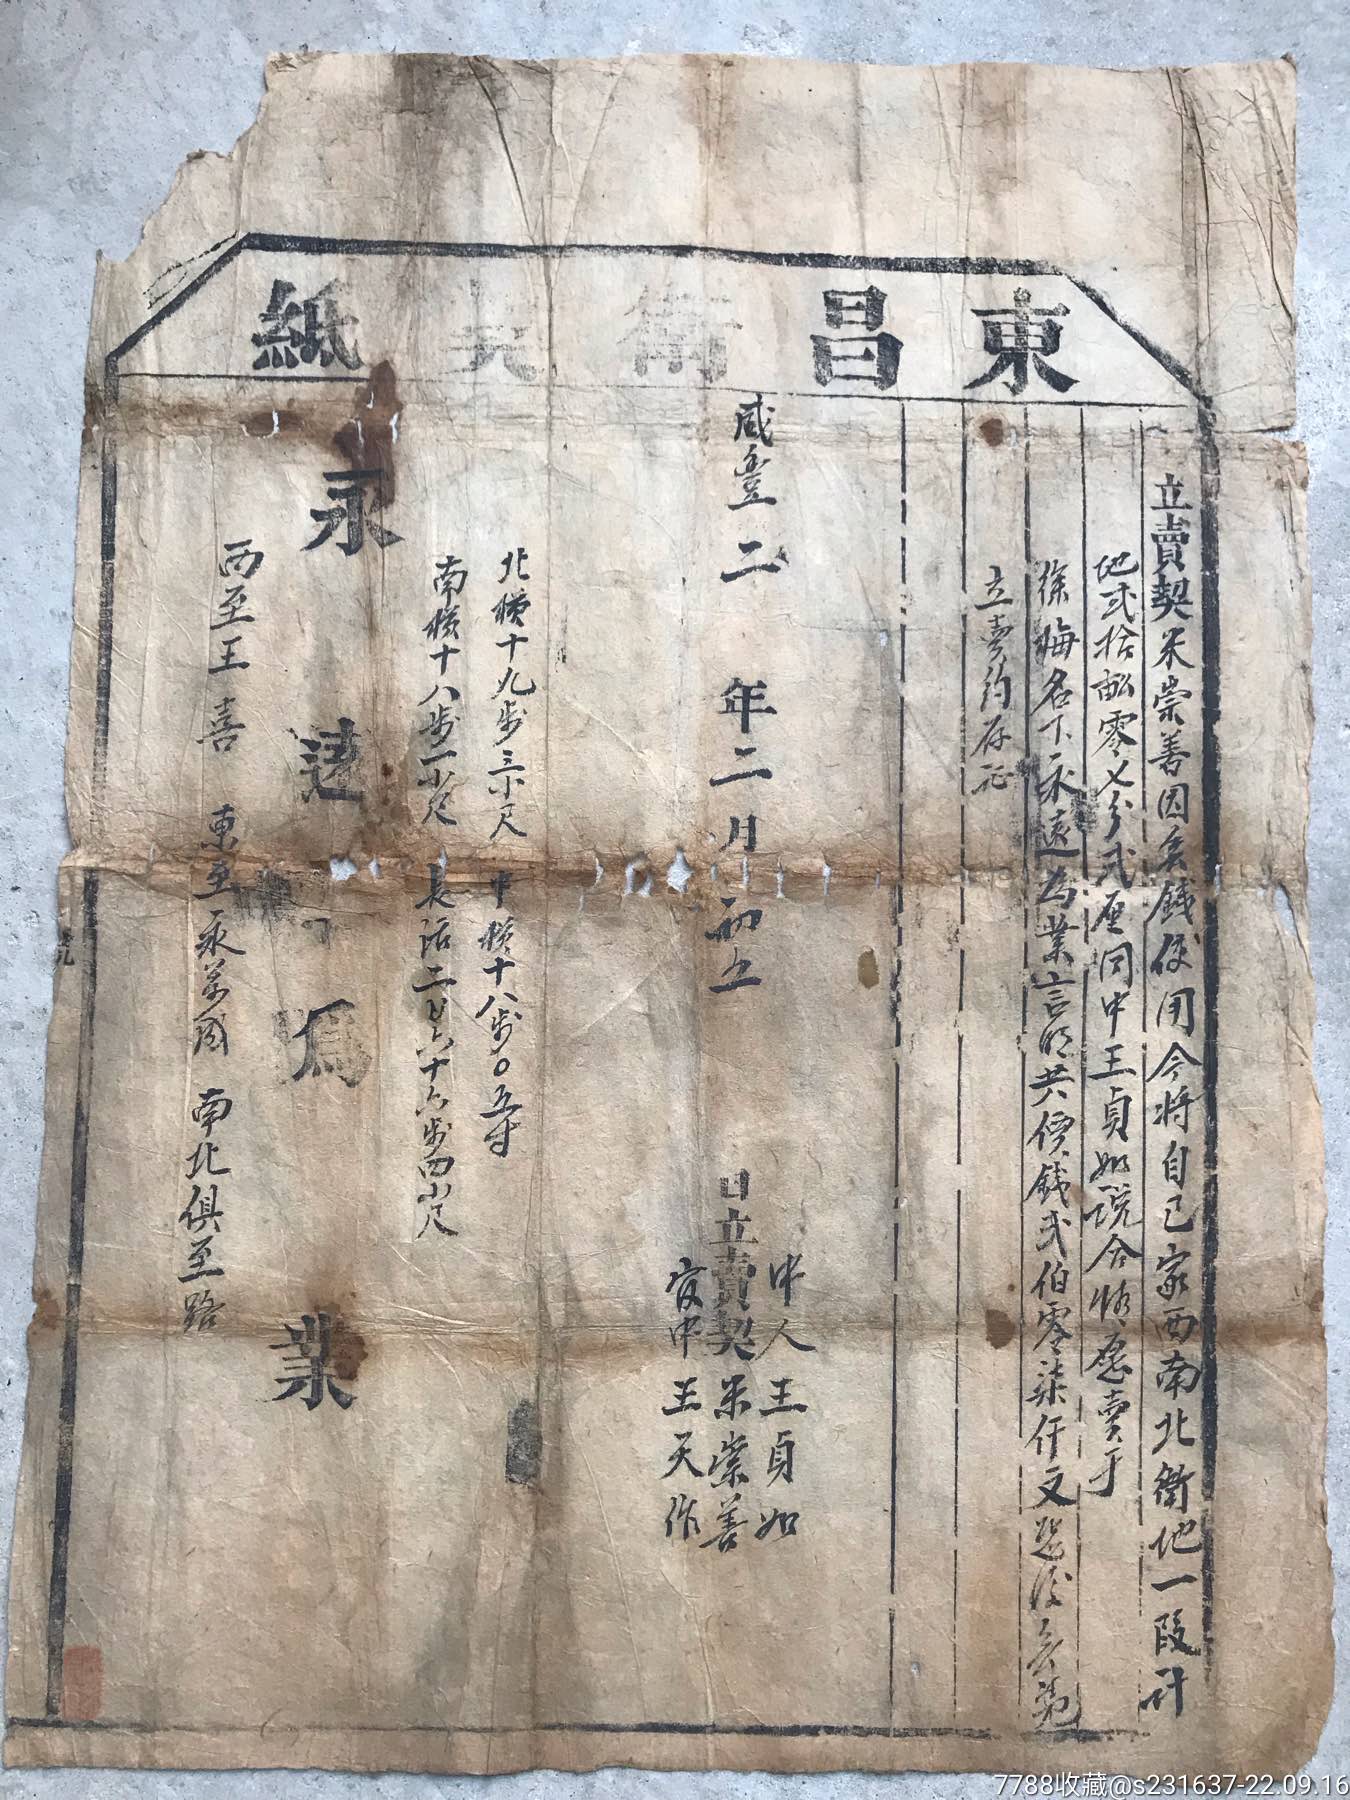 東昌衛契紙
立賣契米崇善因無錢使用今將自己家西南北衛地一段計
地弍拾畝零乂分弍厘同中王貞如說合情愿賣于
徐梅名下永遠為業言明共價錢弍伯零柒仟文恐後無憑
立賣約存证
咸豐二年二月初五日立賣契米崇善
中人王貞如
官中王天作
北橫十九步三小尺 中橫十八步〇五寸
南橫十八步一小尺 長活二百六十六步四小尺
永遠為業
西至王喜 東至 南北俱至路
7788收藏@s231637-22.09.16